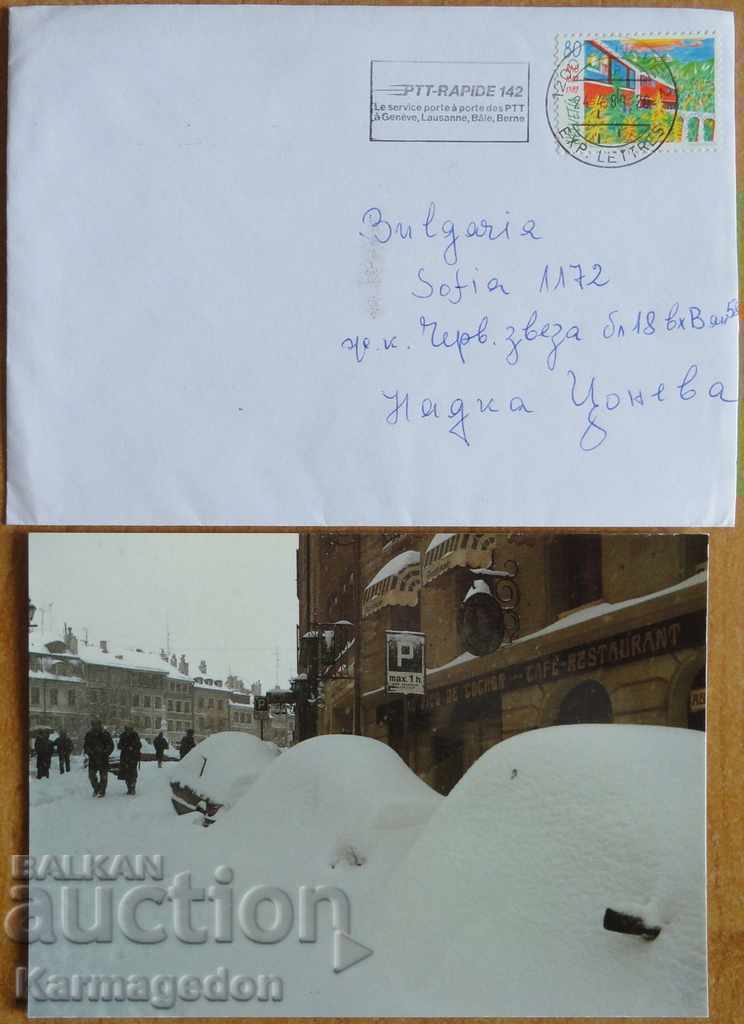 80
HELVETIA
1200
4.4.89-20
EXP. LETTRES
PTT-RAPIDE 142
Le service porte à porte des PTT
à Genève, Lausanne, Bâle, Berne
Bulgaria
Sofia 1172
ж.к. Черв. звезда бл 18 вх В
Надка Цонева
P
max. 1 h
DE COCHON CAFÉ-RESTAURANT
P
BALKAN
auction
Karmagedon